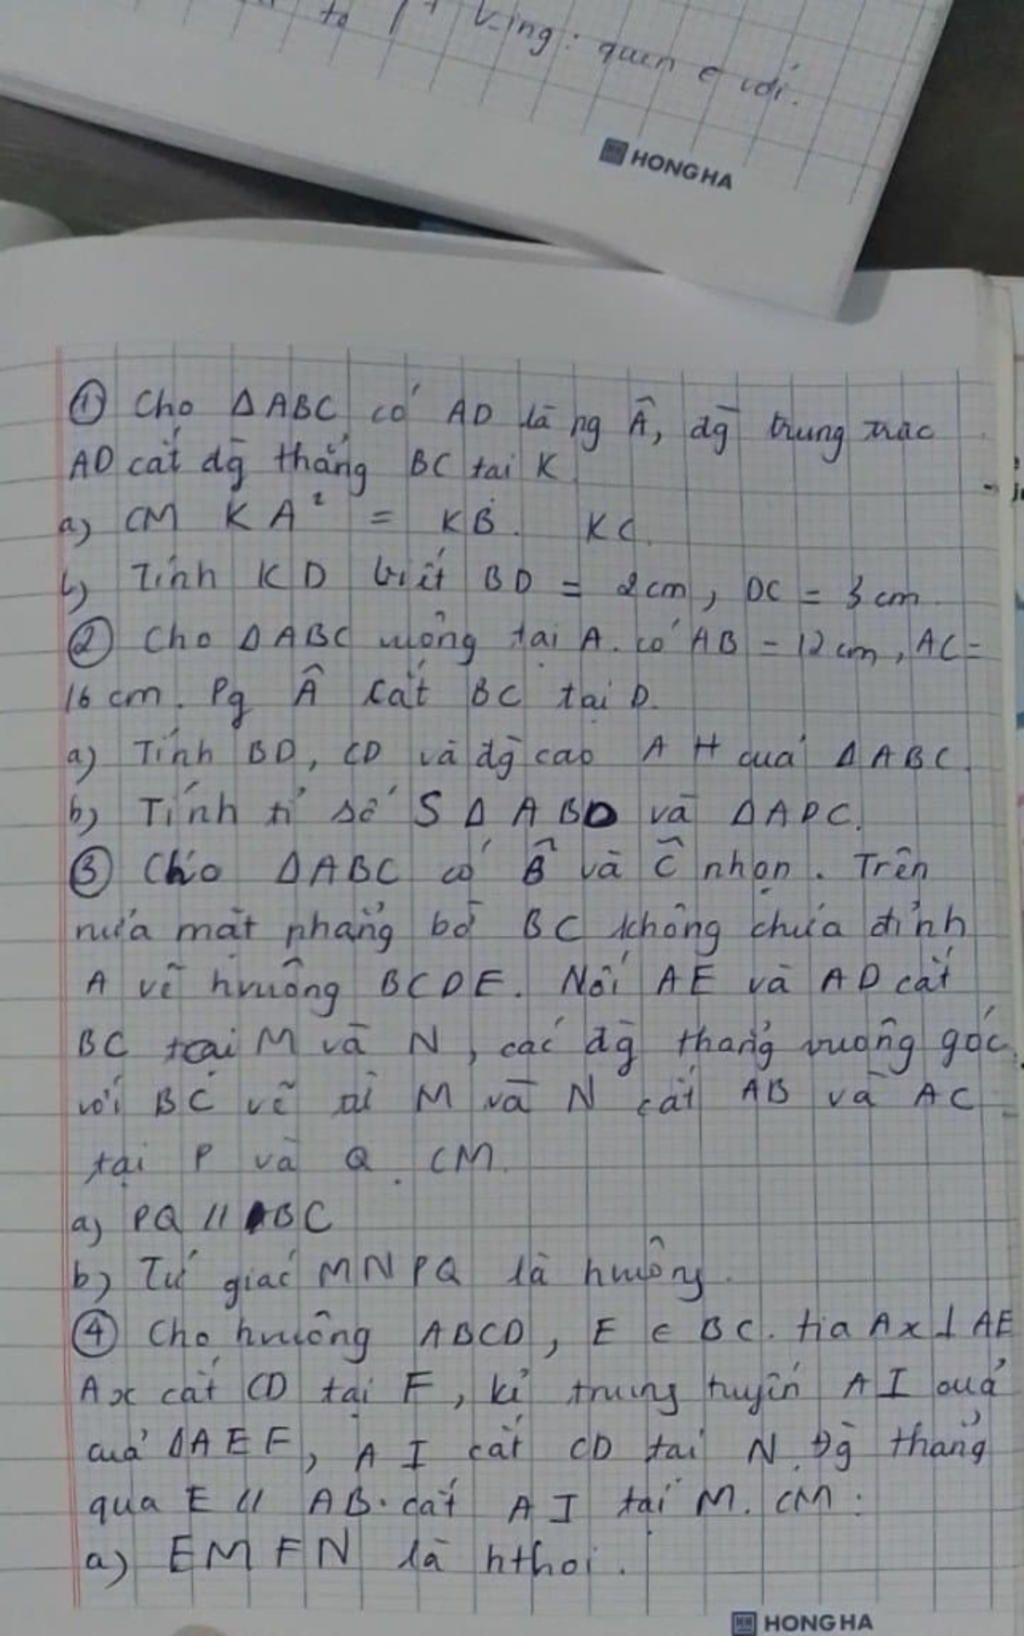 King: quen e với.
HONG HA
① Cho ΔABC có AD là pg Â, đg̀ trung trực
AD cắt đg̀ thẳng BC tại K
a) CM KA² = KB. KC.
b) Tính KD biết BD = 2cm, DC = 3cm.
② Cho ΔABC vuông tại A. có AB = 12 cm, AC =
16 cm. Pg Â cắt BC tại D.
a) Tính BD, CD và đg̀ cao AH quả ΔABC.
b) Tính tỉ số S Δ ABD và ΔADC.
③ Cho ΔABC có B̂ và Ĉ nhọn. Trên
nửa mặt phẳng bờ BC không chứa đỉnh
A vẽ hvuông BCDE. Nối AE và AD cắt
BC tại M và N, các đg̀ thẳng vuông góc
với BC vẽ từ M và N cắt AB và AC
tại P và Q. CM.
a) PQ // BC
b) Tứ giác MNPQ là hvuông.
④ Cho hvuông ABCD, E ∈ BC. tia Ax ⊥ AE
Ax cắt CD tại F, kẻ trung tuyến AI quả
quả ΔAEF, AI cắt CD tại N. Đg̀ thẳng
qua E // AB. cắt AI tại M. CM:
a) EMFN là hthoi.
HONG HA